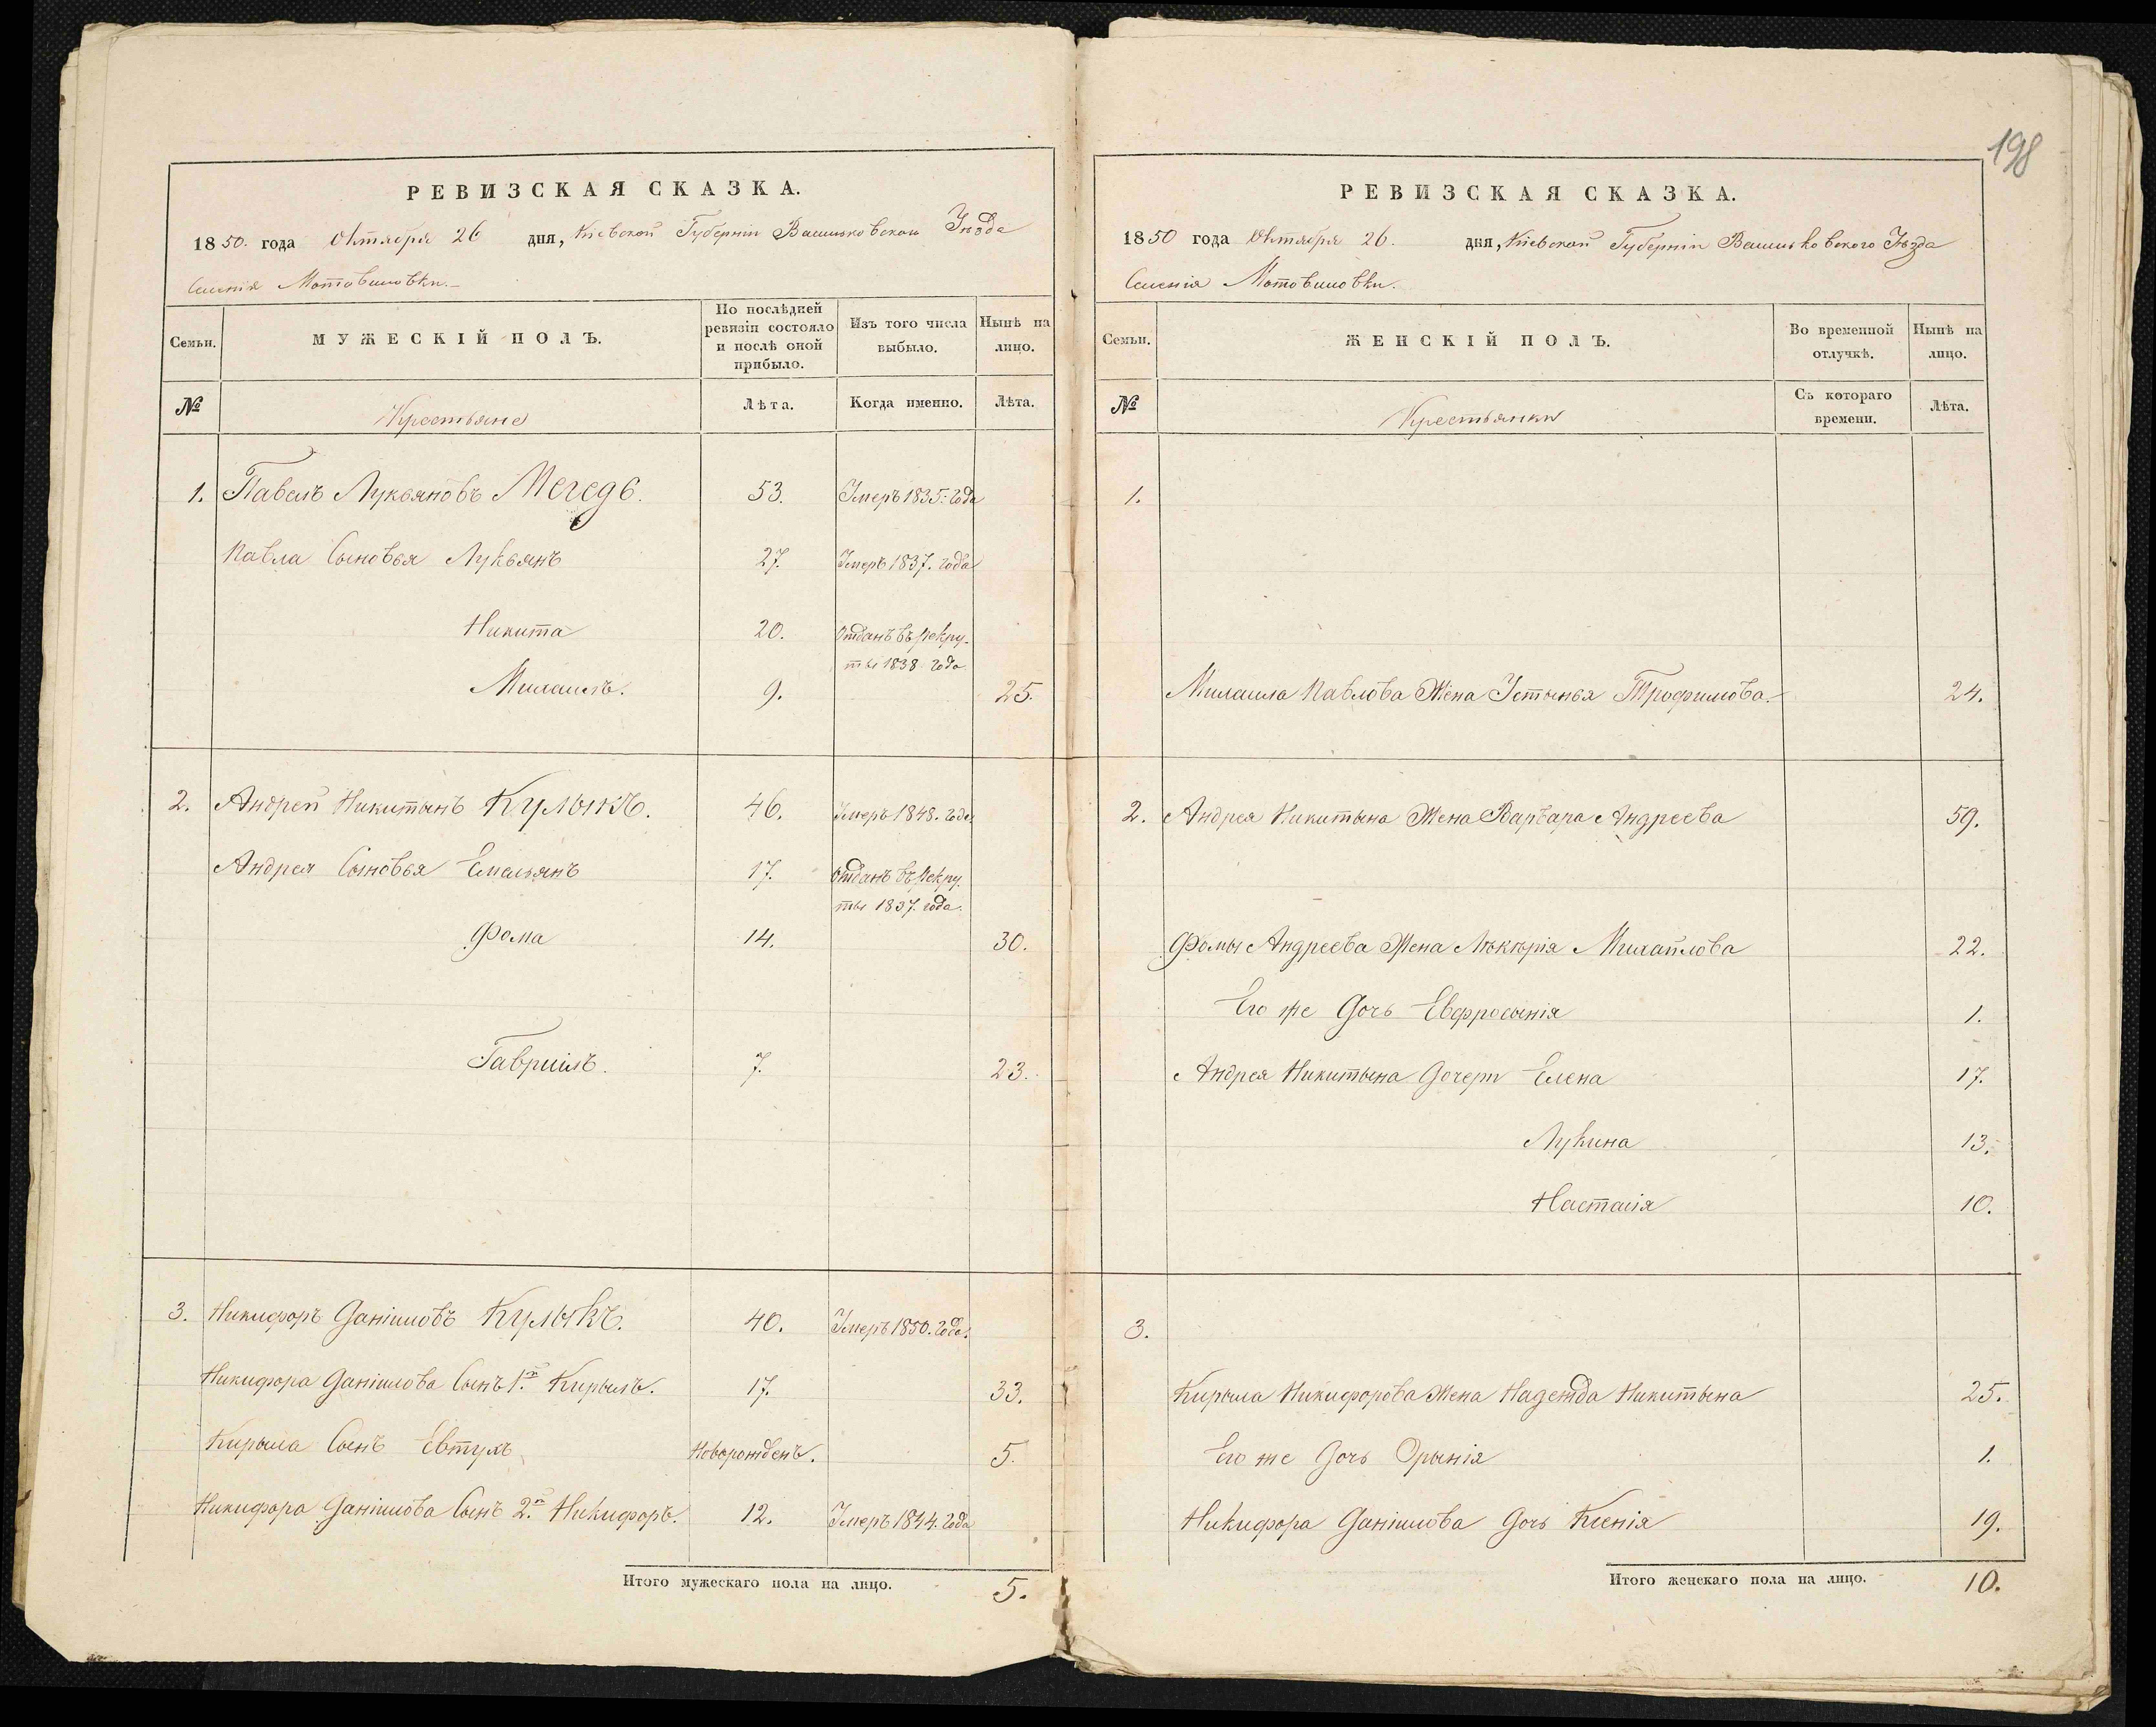 РЕВИЗСКАЯ СКАЗКА.
1850. года Октября 26 дня, Кіевской Губерніи Васильковскаго Уѣзда
Селенія Мотовиловки.
Семьи. МУЖЕСКІЙ ПОЛЪ. По послѣдней ревизіи состояло и послѣ оной прибыло. Изъ того числа выбыло. Нынѣ на лицо.
№ Крестьяне Лѣта. Когда именно. Лѣта.
1. Павелъ Лукьяновъ Мегедь. 53. Умеръ 1835: года
Павла Сыновья Лукьянъ 27. Умеръ 1837. года
Никита 20. Отданъ въ Рекру-
ты 1838 года
Михаилъ. 9. 25.
2. Андрей Никитынъ Кулыкъ. 46. Умеръ 1848. года
Андрея Сыновья Емельянъ 17. Отданъ въ Рекру.
ты 1837. года.
Фома 14. 30.
Гавриилъ. 7. 23.
3. Никифоръ Даніиловъ Кулыкъ. 40. Умеръ 1850. года.
Никифора Даніилова Сынъ 1.й Кирылъ. 17. 33.
Кирыла Сынъ Евтухъ Новорожденъ. 5.
Никифора Даніилова Сынъ 2.й Никифоръ. 12. Умеръ 1844. года
Итого мужескаго пола на лицо. 5.
198
РЕВИЗСКАЯ СКАЗКА.
1850 года Октября 26. дня, Кіевской Губерніи Васильковского Уѣзда
Селенія Мотовиловки.
Семьи. ЖЕНСКІЙ ПОЛЪ. Во временной отлучкѣ. Нынѣ на лицо.
№ Крестьянки Съ котораго времени. Лѣта.
1.
Михаила Павлова Жена Устынья Трофимова. 24.
2. Андрея Никитына Жена Варвара Андреева 59.
Фомы Андреева Жена Михайлова 22.
Его же Дочь Евфросынія 1.
Андрея Никитына Дочери Елена 17.
Лукина 13.
Настасія 10.
3.
Кирыла Никифорова Жена Надежда Никитына 25.
Его же Дочь Орынія 1.
Никифора Даніилова Дочь Ксенія 19.
Итого женскаго пола на лицо. 10.